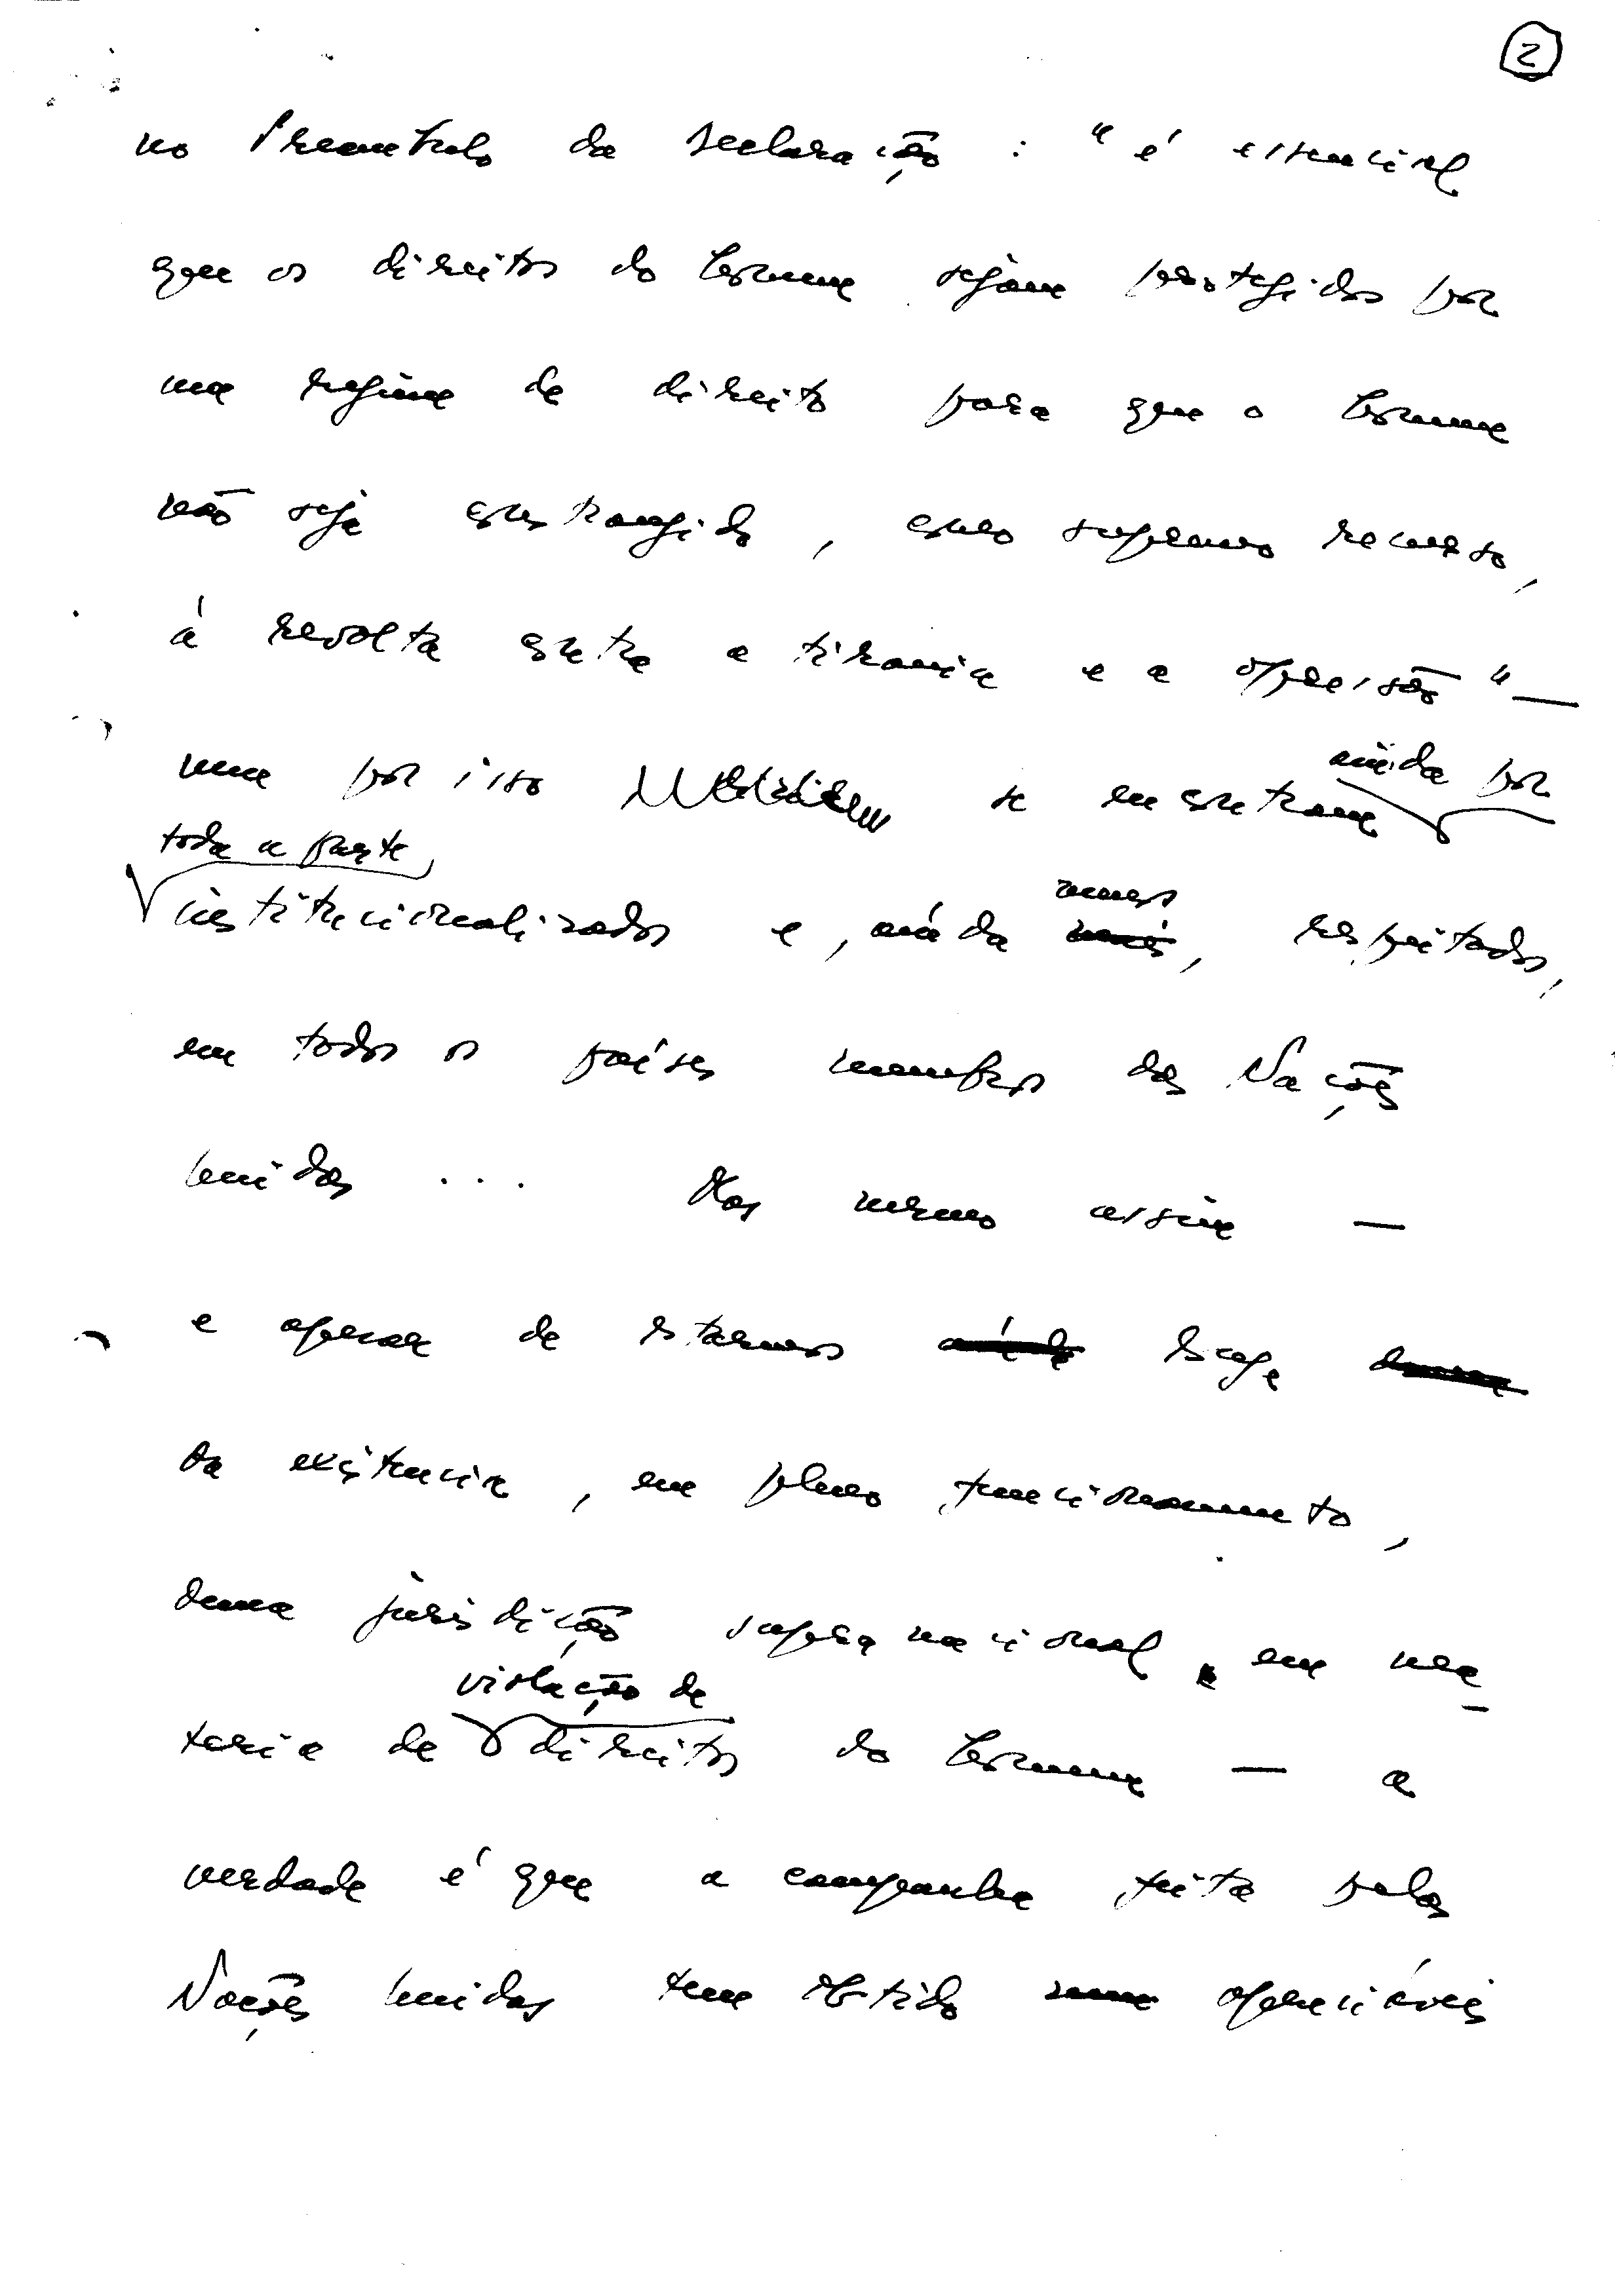 2
no Preambulo da Declaração : " é essencial
que os direitos do homem sejam protegidos por
um regime de direito para que o homem
não seja constrangido, como supremo recurso,
à revolta contra a tirania e a opressão " —
nem por isso se encontram ainda por
toda a parte
institucionalizados e, ainda menos, respeitados,
em todos os países membros das Nações
Unidas ... Mas mesmo assim —
e apesar de estarmos ainda longe
da existencia, em pleno funcionamento,
duma jurisdição supranacional, em ma-
violação de
teria de direitos do homem — a
verdade é que a campanha feita pelas
Nações Unidas tem obtido apreciáveis